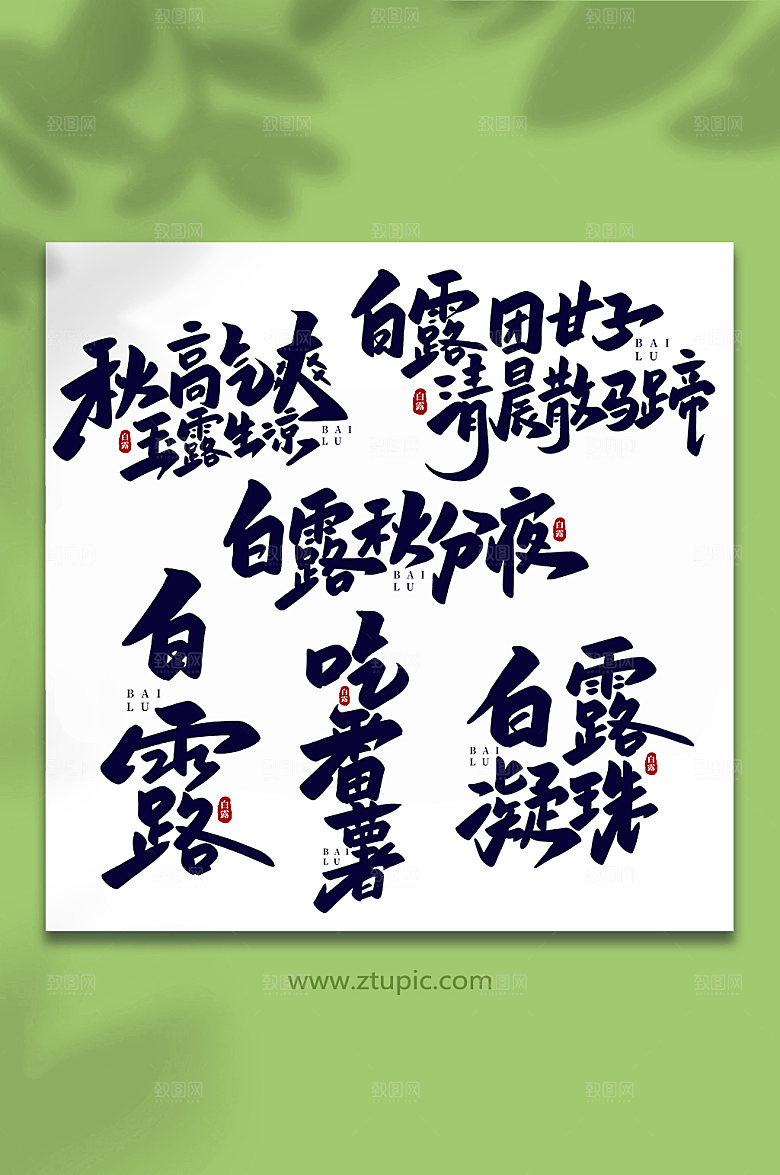 秋高气爽
玉露生凉
白露
BAI
LU
白露团甘子
清晨散马蹄
白露
BAI
LU
白露秋分夜
白露
BAI
LU
白露
BAI
LU
白露
吃番薯
白露
BAI
LU
白露
凝珠
BAI
LU
白露
www.ztupic.com
致图网